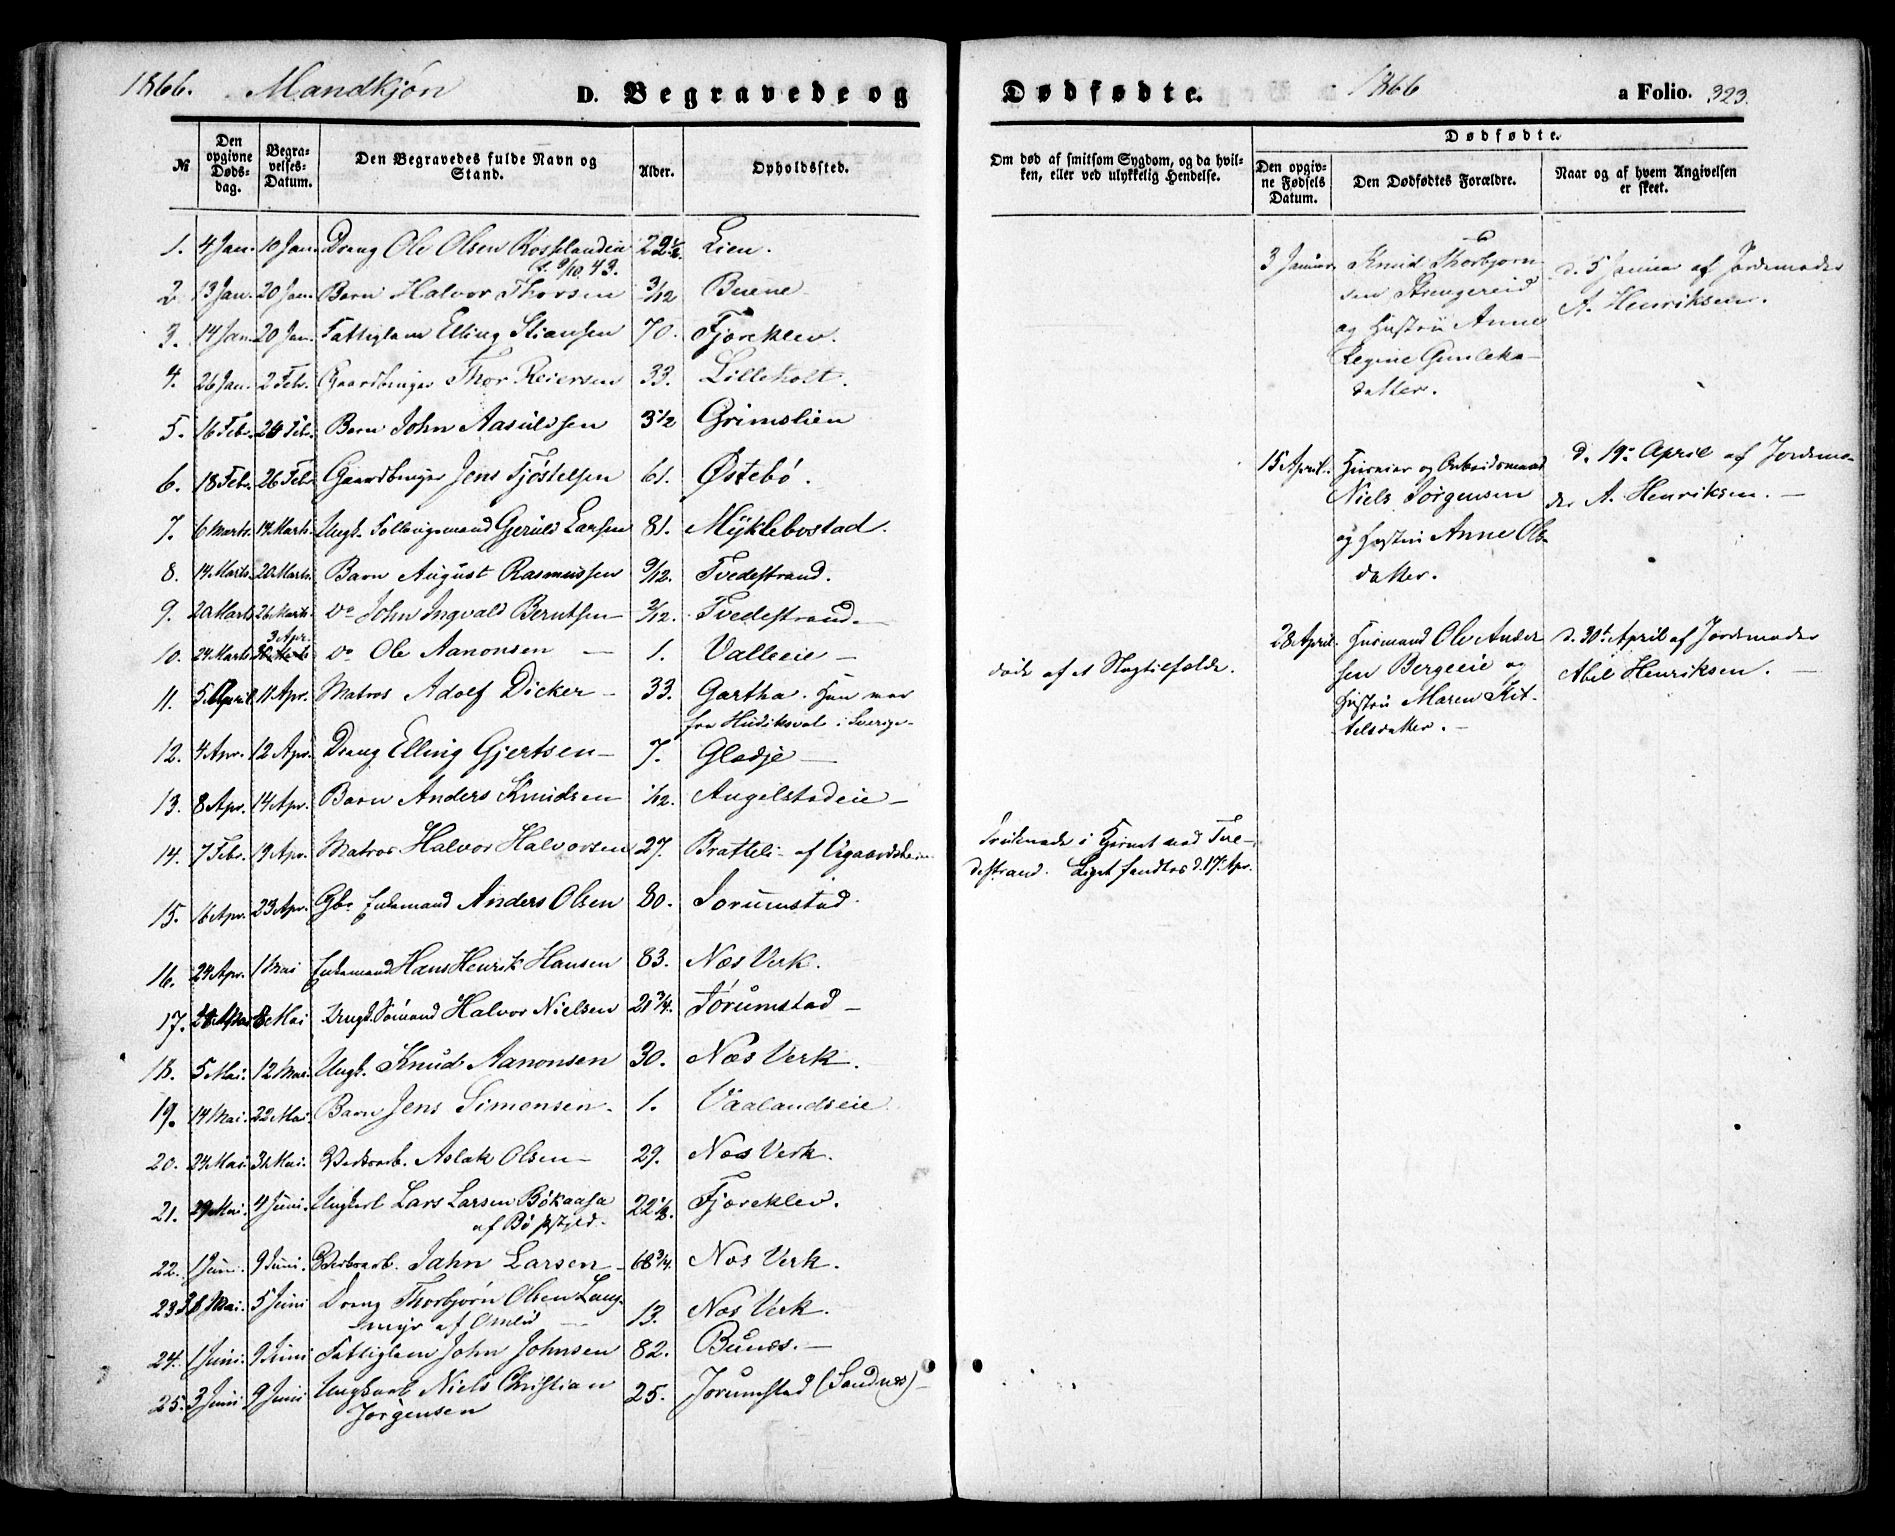 1866. Mandkjøn D. Begravede og Dødfødte. 1866 a Folio. 323.
№ | Den opgivne Døds-dag. | Begra-velses-Datum. | Den Begravedes fulde Navn og Stand. | Alder. | Opholdssted.
Om død af smitsom Sygdom, og da hvil-
ken, eller ved ulykkelig Hendelse.
Dødfødte.
Den opgiv-ne Fødsels Datum. | Den Dødfødtes Forældre. | Naar og af hvem Angivelsen er skeet.
1. 4 Jan. 10 Jan. Dreng Ole Olsen 22½. Lien.
f. 9/10 43.
2. 13 Jan. 20 Jan. Barn Halvor Thorsen 3/12 Buene
3. 14 Jan. 20 Jan. Fattiglem Elling Stiansen 70. Fjøreklev.
4. 26 Jan. 2 Feb. Gaardbruger Thor Reiersen 33. Lilleholt.
5. 16 Feb. 24 Feb. Barn John Aasuldsen 3½ Grimslien
6. 18 Feb. 26 Feb. Gaardbruger Jens Tjøstelsen 61. Østebó.
7. 6 Marts. 14 Marts. Ungk. Gjeruld Larsen 81. Myklebostad.
8. 14 Marts. 20 Marts. Barn August Rasmussen 9/12. Tvedestrand.
9. 20 Marts 26 Marts. do John Ingvald Berntsen 3/12. Tvedestrand.
3 Apr.
10. 24 Marts do Ole Aanonsen — 1. Valleeie —
11. 5 April 11 Apr. Matros Adolf Dicker — 33. Gartha. Han var
fra Hudiksval i Sverige.
død af et
12. 4 Apr. 12 Apr. Dreng Elling Gjertsen — 7. Gladje —
13. 8 Apr. 14 Apr. Barn Anders Knudsen 1/12. Angelstadeie —
14. 7 Febr. 19 Apr. Matros Halvor Halvorsen 27. Bratteli af
Druknede i ved Tve-
destrand. Liget fandtes d. 17 Apr.
15. 16 Apr. 23 Apr. Gbr. Enkemand Anders Olsen 80. Jorumstad.
16. 24 Apr. 1 Mai Enkemand Hans Henrik Hansen 83. Næs Verk.
17. 8 Mai Ungk. Sømand Halvor Nielsen 21¾. Jorumstad —
18. 5 Mai. 12 Mai. Ungk. Knud Aanonsen 30. Næs Verk.
19. 14 Mai. 22 Mai. Barn Jens Simonsen. 1. Vaalandseie
20. 24 Mai. 31 Mai. Verksarb. Aslak Olsen — 29. Næs Verk.
21. 29 Mai. 4 Juni. Ungkarl Lars Larsen Bókaasa 22½. Fjøreklev.
af Bø Prstgjeld.
22. 1 Juni. 9 Juni. Verksarb. Jahn Larsen — 68¾. Næs Verk.
23. 31 Mai. 5 Juni Dreng Thorbjørn Olsen Lang-
myr af Omlid — 13. Næs Verk.
24. 1 Juni. 9 Juni Fattiglem John Johnsen 82. Bunæs. —
25. 3 Juni 9 Juni Ungkarl Niels Christian 25. Jorumstad (Sandnæs) —
Jørgensen
3 Januar Knud Thorbjørn-
sen Strengereid
og Hustru Anne
Regine Gunleks-
datter.
d. 5 Januar af Jordemoder
A. Henriksen.
15 April. og Arbeidsmand
Niels Jørgensen
og Hustru Anne Ols-
datter.
d. 19de April af Jordemo-
der A. Henriksen. —
28 April. Husmand Ole Ander-
sen Bergeeie og
Hustru Maren Kit-
telsdatter. —
d. 30te April af Jordemoder
Abel Henriksen. —